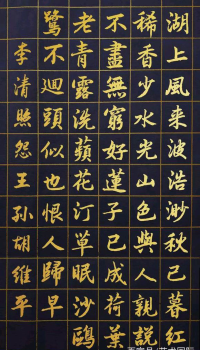 湖上風来波浩渺秋已暮紅
稀香少水光山色與人親說
不盡無窮好蓮子已成荷葉
老青露洗蘋花汀草眠沙鷗
鷺不迴頭似也恨人歸早
李清照怨王孫胡維平